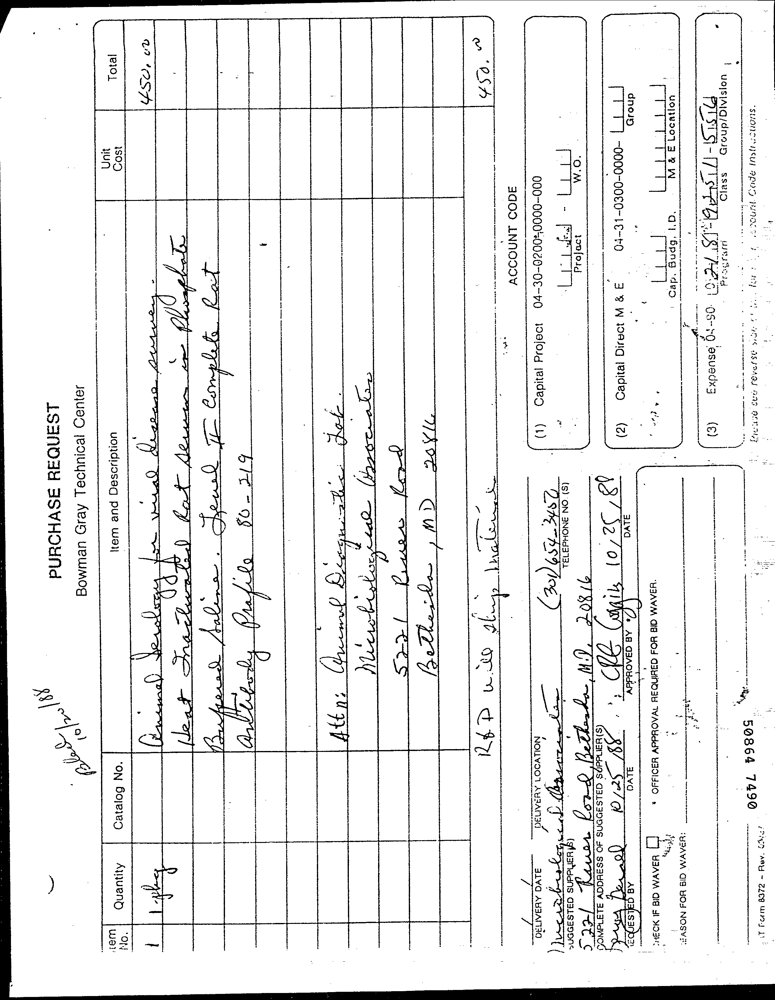 PURCHASE REQUEST
Bowman Gray Technical Center
10/20/88
Item No. Quantity Catalog No. Item and Description Unit Cost Total
1 1-pkg Animal Serology for viral disease survey. 450.00
Heat Inactivated Rat serum in Phosphate
Buffered Saline. Level II Complete Rat
Antibody Profile 80-219
Attn: Animal Diagnostic Lab.
Microbiological Associates
5221 River Road
Bethesda, MD 20816
R&D will ship material 450.00
DELIVERY DATE DELIVERY LOCATION
Microbiological Associates (301) 654-3400
SUGGESTED SUPPLIER(S) TELEPHONE NO (S)
5221 River Road, Bethesda, M.D. 20816
COMPLETE ADDRESS OF SUGGESTED SUPPLIER(S)
10/25/88 10/25/88
REQUESTED BY DATE APPROVED BY DATE
CHECK IF BID WAIVER * OFFICER APPROVAL REQUIRED FOR BID WAVER.
REASON FOR BID WAVER:
ACCOUNT CODE
(1) Capital Project 04-30-0200-0000-000
Project W.O.
(2) Capital Direct M & E 04-31-0300-0000-
Group
Cap. Budg. I.D. M & E Location
(3) Expense 04-90-
Program Class Group/Division
Please see reverse side for Account Code Instructions.
50864 7490
Form 8372 - Rev.